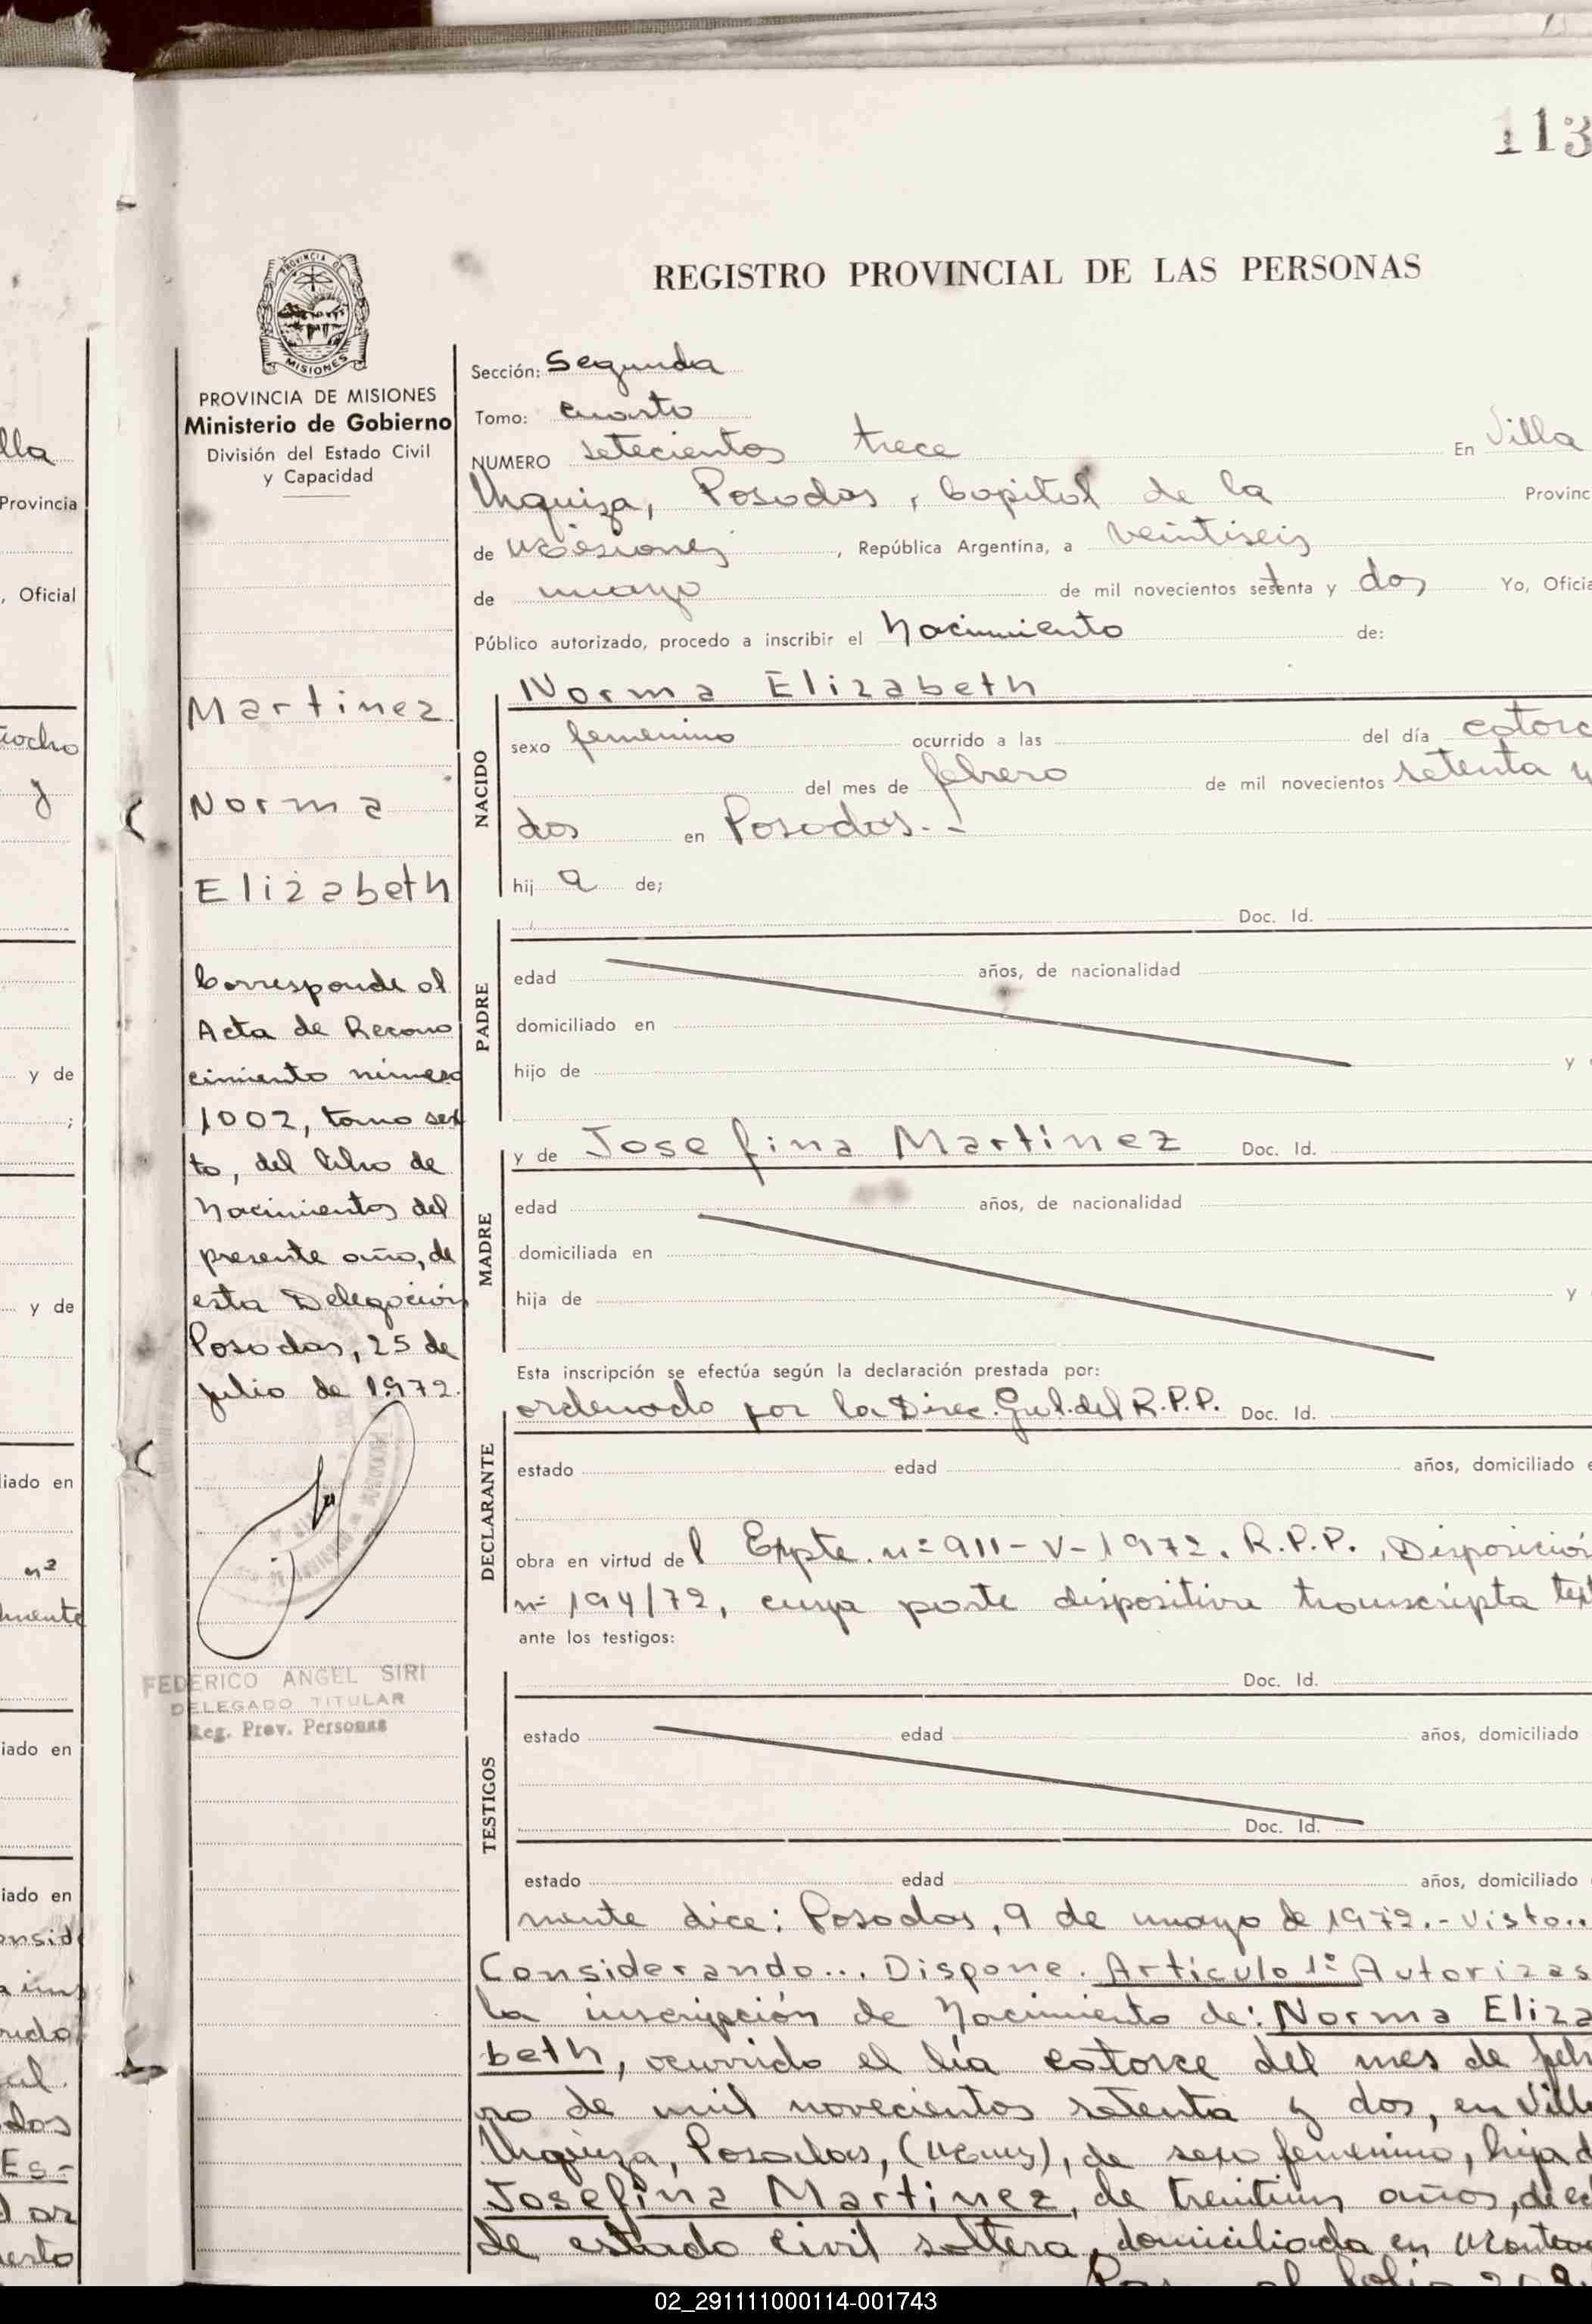 113
REGISTRO PROVINCIAL DE LAS PERSONAS
PROVINCIA DE MISIONES
PROVINCIA DE MISIONES
Ministerio de Gobierno
División del Estado Civil
y Capacidad
Martinez
Norma
Elizabeth
Corresponde al
Acta de Recono
cimiento número
1002, tomo sex
to, del libro de
Nacimientos del
presente año, de
esta Delegación
Posadas, 25 de
julio de 1972.
FEDERICO ANGEL SIRI
DELEGADO TITULAR
Reg. Prov. Personas
Sección: Segunda
Tomo: cuarto
NUMERO setecientos trece En Villa
Urquiza, Posadas, Capital de la Provinc
de Misiones, República Argentina, a veintiseis
de mayo de mil novecientos setenta y dos Yo, Oficia
Público autorizado, procedo a inscribir el Nacimiento de:
NACIDO
Norma Elizabeth
sexo femenino ocurrido a las del día catorc
del mes de febrero de mil novecientos setenta y
dos en Posadas.-
hij a de;
PADRE
Doc. Id.
edad años, de nacionalidad
domiciliado en
hijo de y
MADRE
y de Josefina Martinez Doc. Id.
edad años, de nacionalidad
domiciliada en
hija de y
Esta inscripción se efectúa según la declaración prestada por:
DECLARANTE
ordenado por la Direc. Gral. del R.P.P. Doc. Id.
estado edad años, domiciliado e
obra en virtud del Expte. nº 911-V-1972. R.P.P., Disposición
nº 194/72, cuya parte dispositiva transcripta text
ante los testigos:
TESTIGOS
Doc. Id.
estado edad años, domiciliado
Doc. Id.
estado edad años, domiciliado
mente dice: Posadas, 9 de mayo de 1972.- Visto..
Considerando... Dispone. Artículo 1º Autorizas
la inscripción de Nacimiento de: Norma Eliza
beth, ocurrido el día catorce del mes de febre
ro de mil novecientos setenta y dos, en Villa
Urquiza, Posadas, (Mnes), de sexo femenino, hija d
Josefina Martinez, de treintiun años, de
de estado civil soltera, domiciliada en
el folio
lla
Provincia
, Oficial
iocho
y
y de
;
y de
liado en
nº
mente
iado en
iado en
onsid
al
dos
Es-
02_291111000114-001743